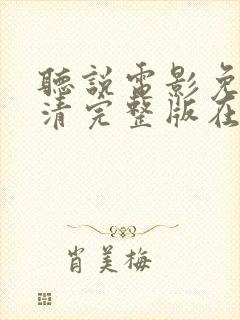 聽說電影免
清完整版在
肖美梅